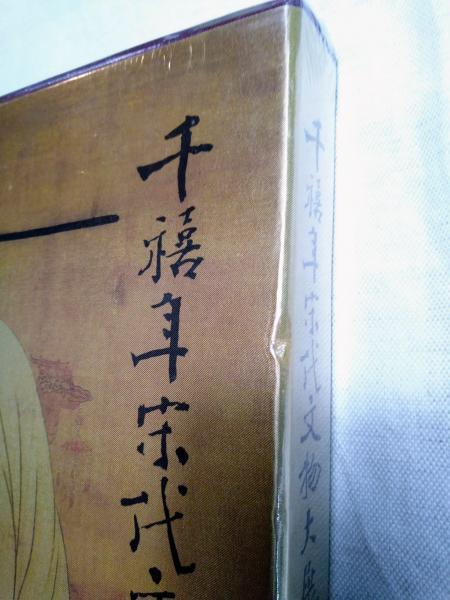 千禧年宋代文
千禧年宋代文物大展